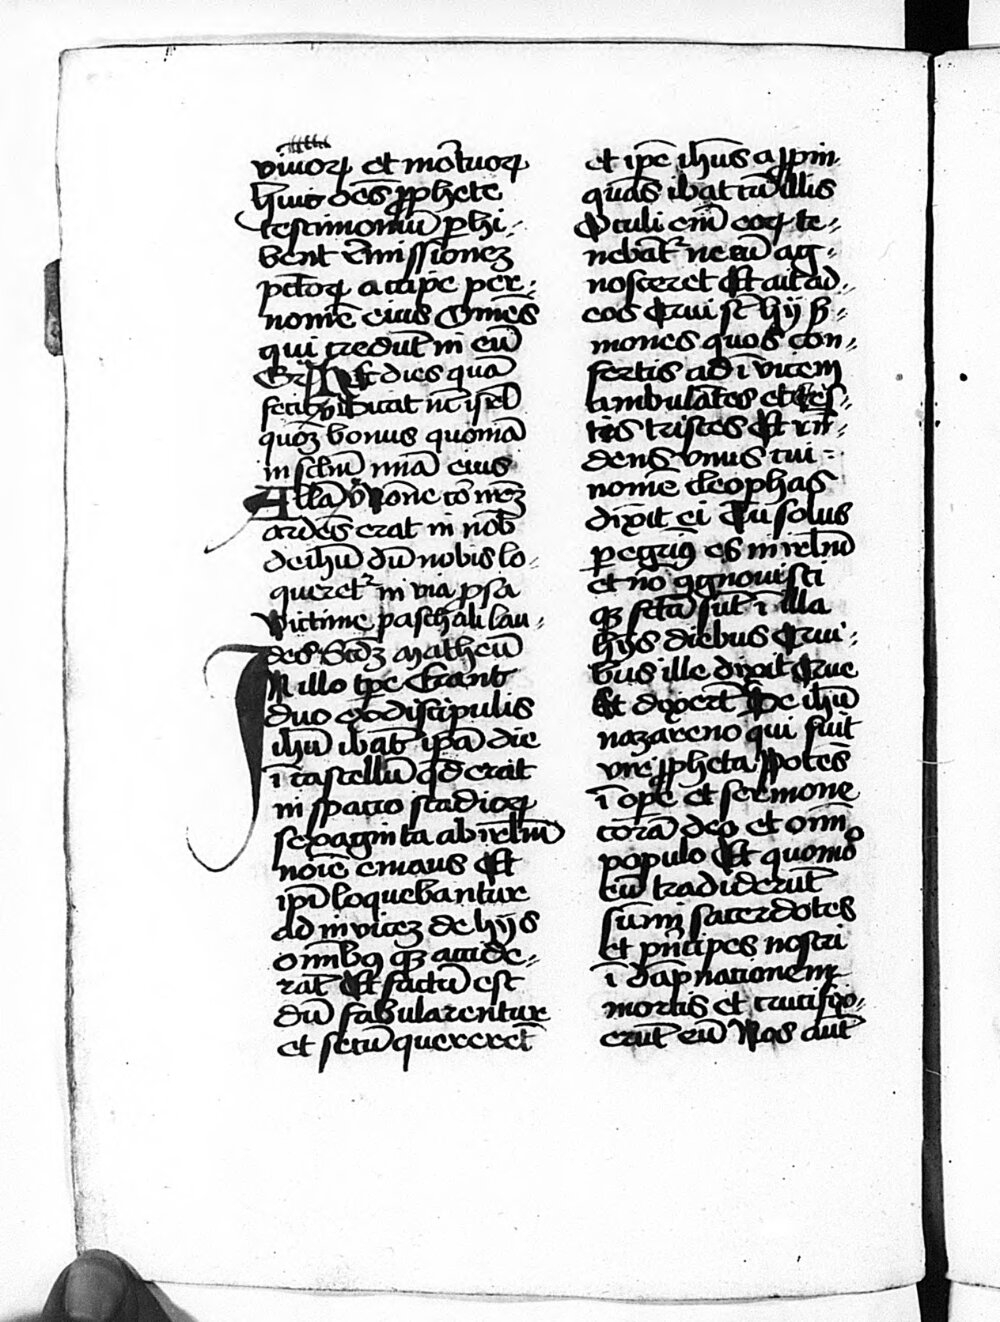 viuoꝝ et mortuoꝝ
Huic oēs ꝓphete
testimoniū ꝑhi-
bent remissionez
pctōꝝ accipe per-
nomē eius Omēs
qui credūt in eū
Gr̄ Hec dies quā
fecit dicat nūc isrl̄
quoꝫ bonus quoniā
in sclm̄ mīa eius
Alla
ardēs erat in nob̄
de ihū dū nobis lo-
queret᷑ in via psa
Victime paschali lau-
des Scdꝫ Matheū
In illo tp̄e Erant
duo ex discipulis
ihū ibāt ipā die
ī castellū qd̄ erat
in spacio stadioꝝ
sexaginta ab irlm̄
noīe emaus Et
ipī loquebantur
ad inuicez de hijs
om̄ibꝰ qꝫ accide-
rāt Et factū est
dū fabularentur
et secū quererēt
et ip̄e ihūs aꝓpin
quās ibat cū illis
Oculi em̄ eoꝝ te-
nebāt᷑ ne eū ag-
noscerēt Et ait ad
eos Qui sūt hij ẞ-
mones quos con-
fertis ad īuicem
ambulātes et es-
tis tristes Et rn̄-
dens vnus cui
nomē cleophas
dixit ei Tu solus
ꝑegrinꝰ es in irlm̄
et nō cognouisti
qꝫ fctā sūt ī illa
hijs diebus Qui-
bus ille dixit Que
Et dixerūt De ihū
nazareno qui fuit
vir ꝓpheta potēs
ī ope et sermone
corā deo et omī
populo Et quomō
eū tradiderūt
sūmi sacerdotes
et pn̄cipes nostri
ī dāpnationem
mortis et crucifix-
erūt eū Nos aūt